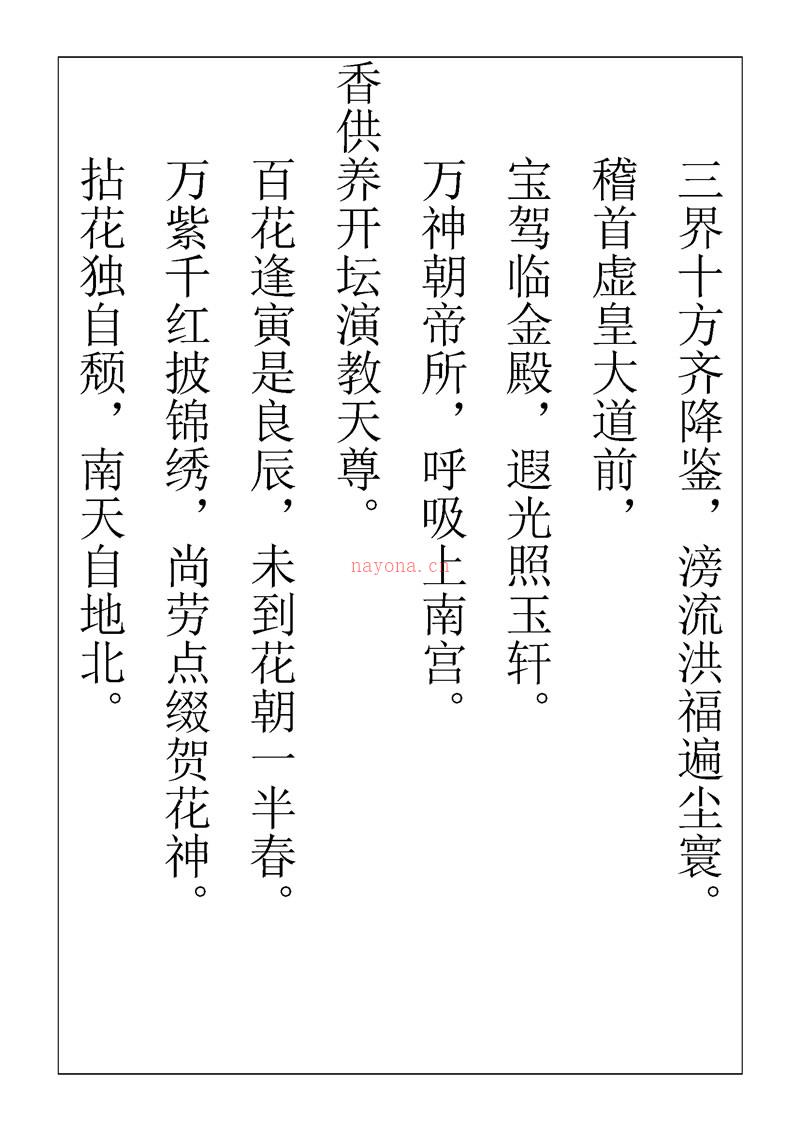 三界十方齐降鉴，滂流洪福遍尘寰。
稽首虚皇大道前，
宝驾临金殿，遐光照玉轩。
万神朝帝所，呼吸上南宫。
香供养开坛演教天尊。
百花逢寅是良辰，未到花朝一半春。
万紫千红披锦绣，尚劳点缀贺花神。
拈花独自颓，南天自地北。
nayona.cn